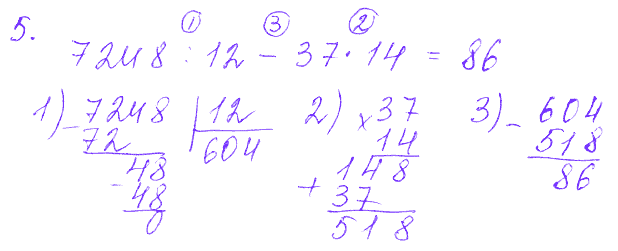 ① ③ ②
5. 7248 : 12 - 37 · 14 = 86
1) - 7248 | 12 2) × 37 3) - 604
72 604 14 518
48 148 86
- 48 + 37
0 518